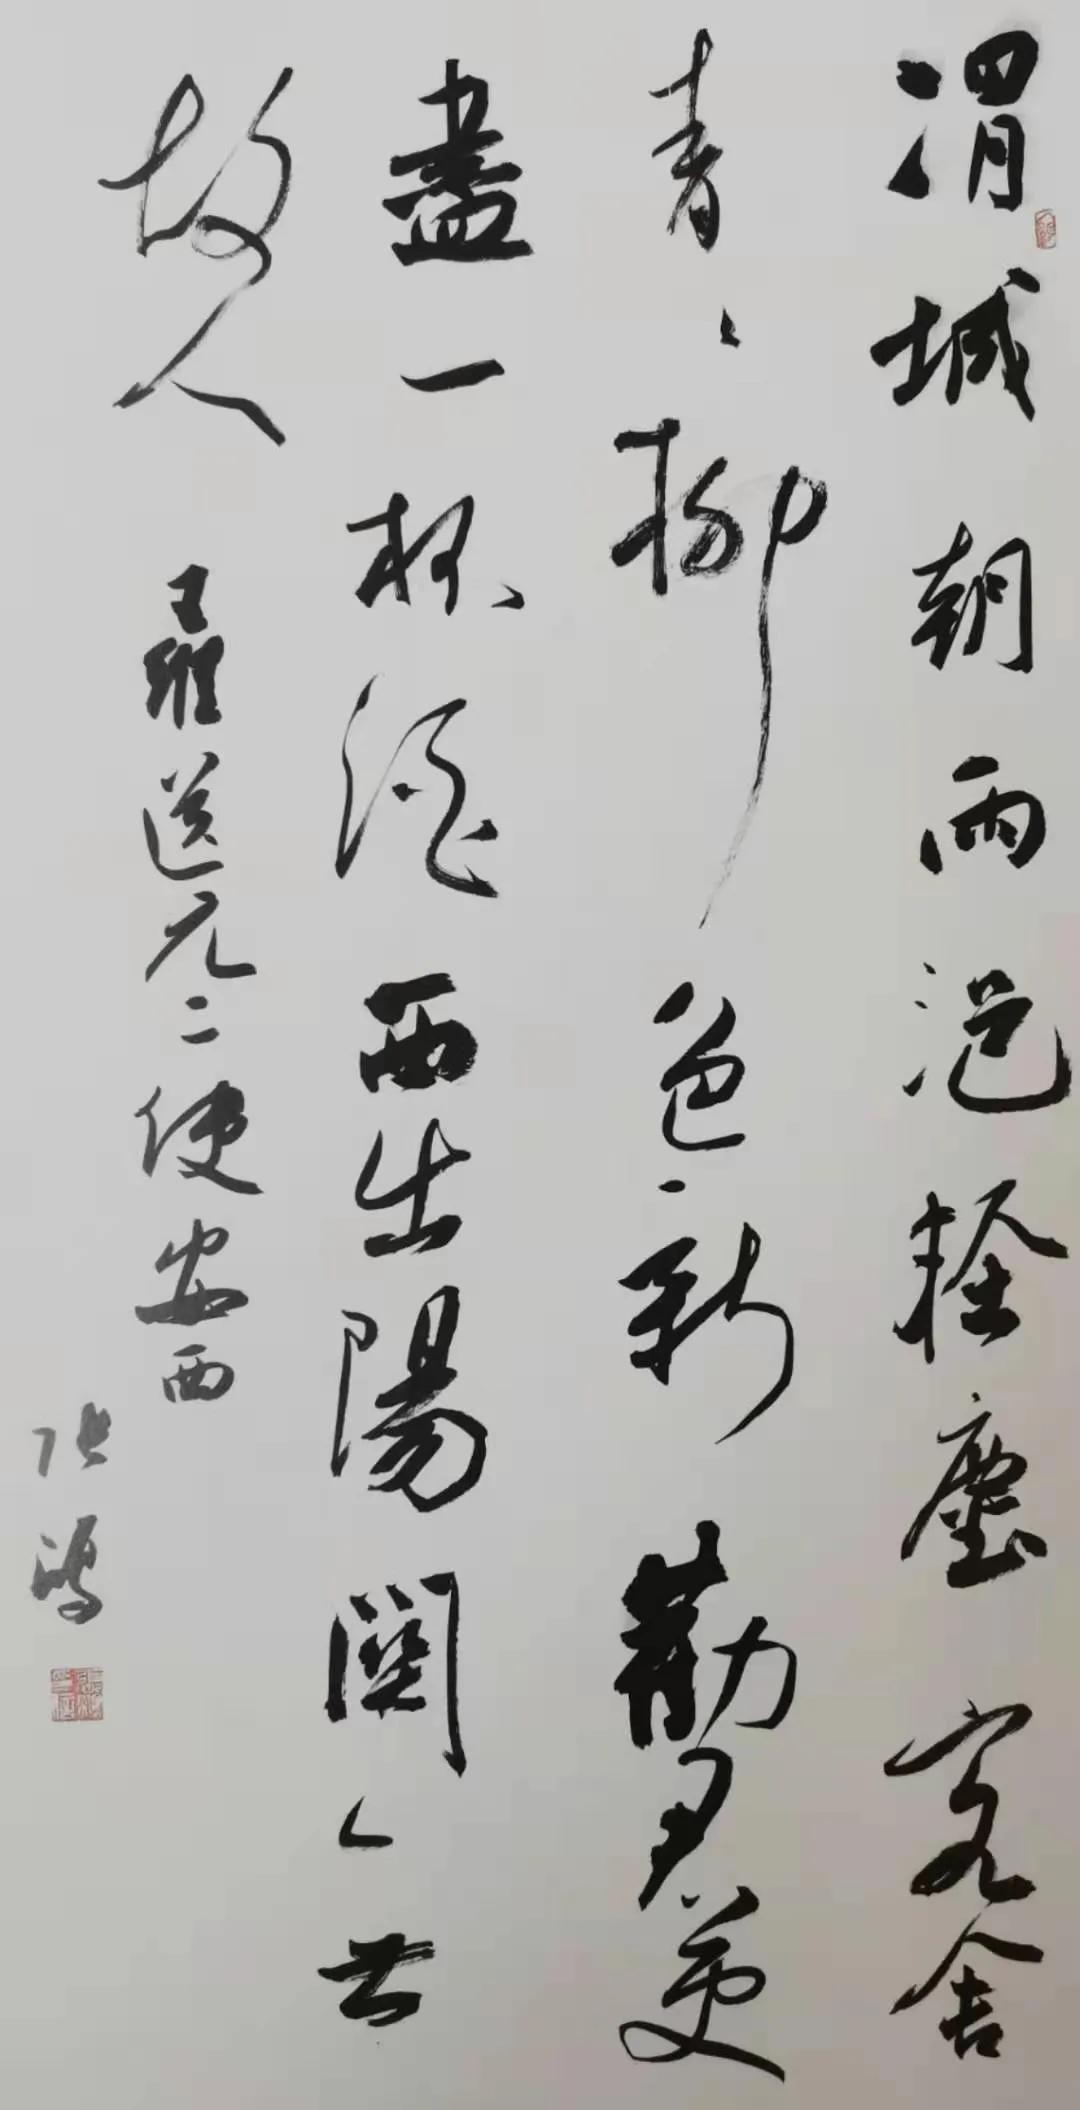 渭城朝雨浥輕塵客舍
青々柳色新勸君更
盡一杯酒西出陽關無
故人
王維送元二使安西
張鴻